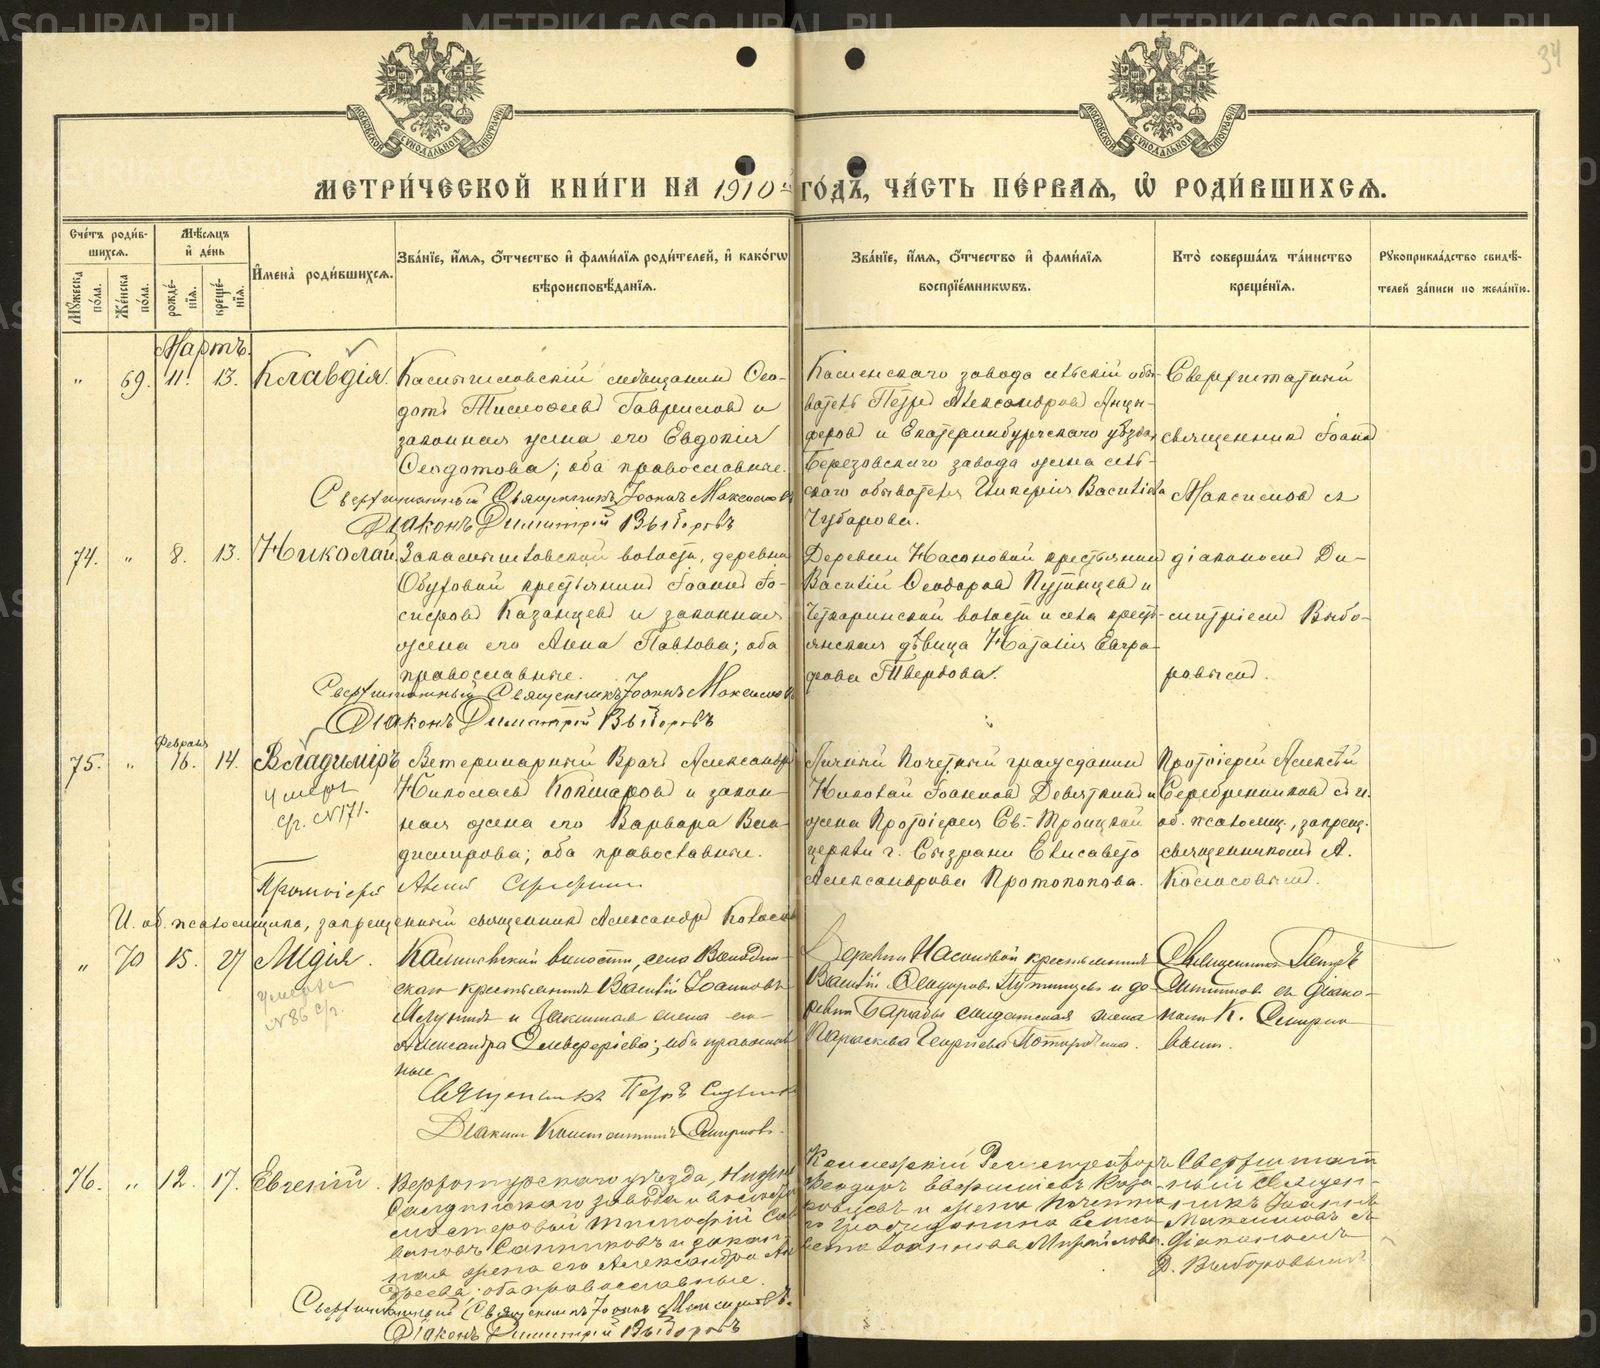 METRIKI.GASO-URAL.RU
34
МОСКОВСКОЙ СѴНОДАЛЬНОЙ ТИПОГРАФІИ
МОСКОВСКОЙ СѴНОДАЛЬНОЙ ТИПОГРАФІИ
МЕТРИ́ЧЕСКОЙ КНИ́ГИ НА 1910 ГО́ДЪ, ЧА́СТЬ ПЕ́РВАѦ, Ѡ҆ РОДИ́ВШИХСѦ.
Сче́тъ роди́вшихсѧ.
Мꙋ́жеска по́ла.
Же́нска по́ла.
Мѣ́сѧцъ и҆ де́нь
рожде́нїѧ.
креще́нїѧ.
И҆мена̀ роди́вшихсѧ.
Зва́нїе, и҆́мѧ, ѻ҆́тчество и҆ фами́лїѧ роди́телей, и҆ како́гѡ
вѣроисповѣ́данїѧ.
Зва́нїе, и҆́мѧ, ѻ҆́тчество и҆ фами́лїѧ
воспрїе́мникѡвъ.
Кто̀ соверша́лъ та́инство
креще́нїѧ.
Рꙋкоприкла́дство свидѣ́-
телей за́писи по жела́нїю.
Мартъ.
„ 69. 11. 13. Клавдія.
Камышловскій мѣщанинъ Ѳео-
дотъ Тимоѳеевъ Гавриловъ и
законная жена его Евдокія
Ѳеодотова; оба православные.
Сверхштатный Священникъ Іоаннъ Максимовъ
Діаконъ Димитрій Выборовъ
Каменскаго завода сельскій обы-
ватель Петръ Александровъ Анци-
феровъ и Екатеринбургскаго уѣзда,
Березовскаго завода жена сель-
скаго обывателя Васильева
Чубарова.
Сверхштатный
священникъ Іоаннъ
Максимовъ съ
74. „ 8. 13. Николай.
волости, деревни
крестьянинъ Іоаннъ Іо-
сифовъ Казанцевъ и законная
жена его Анна Павлова; оба
православные.
Сверхштатный Священникъ Іоаннъ Максимовъ
Діаконъ Димитрій Выборовъ
Деревни Насоновой крестьянинъ
Василій Ѳеодоровъ Путинцевъ и
волости и села кресть-
янская дѣвица Наталія Евгра-
фова
діакономъ Ди-
митріемъ Выбо-
ровымъ.
Февраль
75. „ 16. 14. Владиміръ
Умеръ
с/г. №171.
Ветеринарный Врачъ Александръ
Николаевъ Кокшаровъ и закон-
ная жена его Варвара Вла-
димирова; оба православные.
Протоіерей
И. об. псаломщика, запрещенный священникъ Александръ
Личный Почетный гражданинъ
Николай Іоанновъ Девяткинъ и
жена Протоіерея Св.-Троицкой
церкви г. Сызрани Елисавета
Александрова Протопопова.
Протоіерей Алексѣй
Серебренниковъ съ и.
об. псаломщ., запрещ.
священникомъ А.
„ 70 15. 27 Лидія.
умерла
№ 86 с/г.
волости, село
крестьянинъ Василій Іоанновъ
и законная жена его
Александра православ-
ные
Священникъ Петръ
Діаконъ Константинъ Смирновъ.
Деревни Насоновой крестьянинъ
Василій Ѳеодоровъ Путинцевъ и де-
ревни солдатская жена
Параскева Георгіева
Священникъ Петръ
съ діако-
номъ К. Смирно-
вымъ.
76. „ 12. 17. Евгеній.
Верхотурскаго уѣзда, Нижне-
Салдинскаго завода и волости
мастеровой Тимофій
Сапожниковъ и закон-
ная жена его Александра Ан-
дреева; оба православные.
Сверхштатный Священникъ Іоаннъ Максимовъ.
Діаконъ Димитрій Выборовъ
Коллежскій Регистраторъ
Ѳеодоръ
и жена Почетна-
го Гражданина Елиса-
вета Іоаннова Михайлова.
Сверхштат-
ный Священ-
никъ Іоаннъ
Максимовъ съ
діакономъ
Д. Выборовымъ